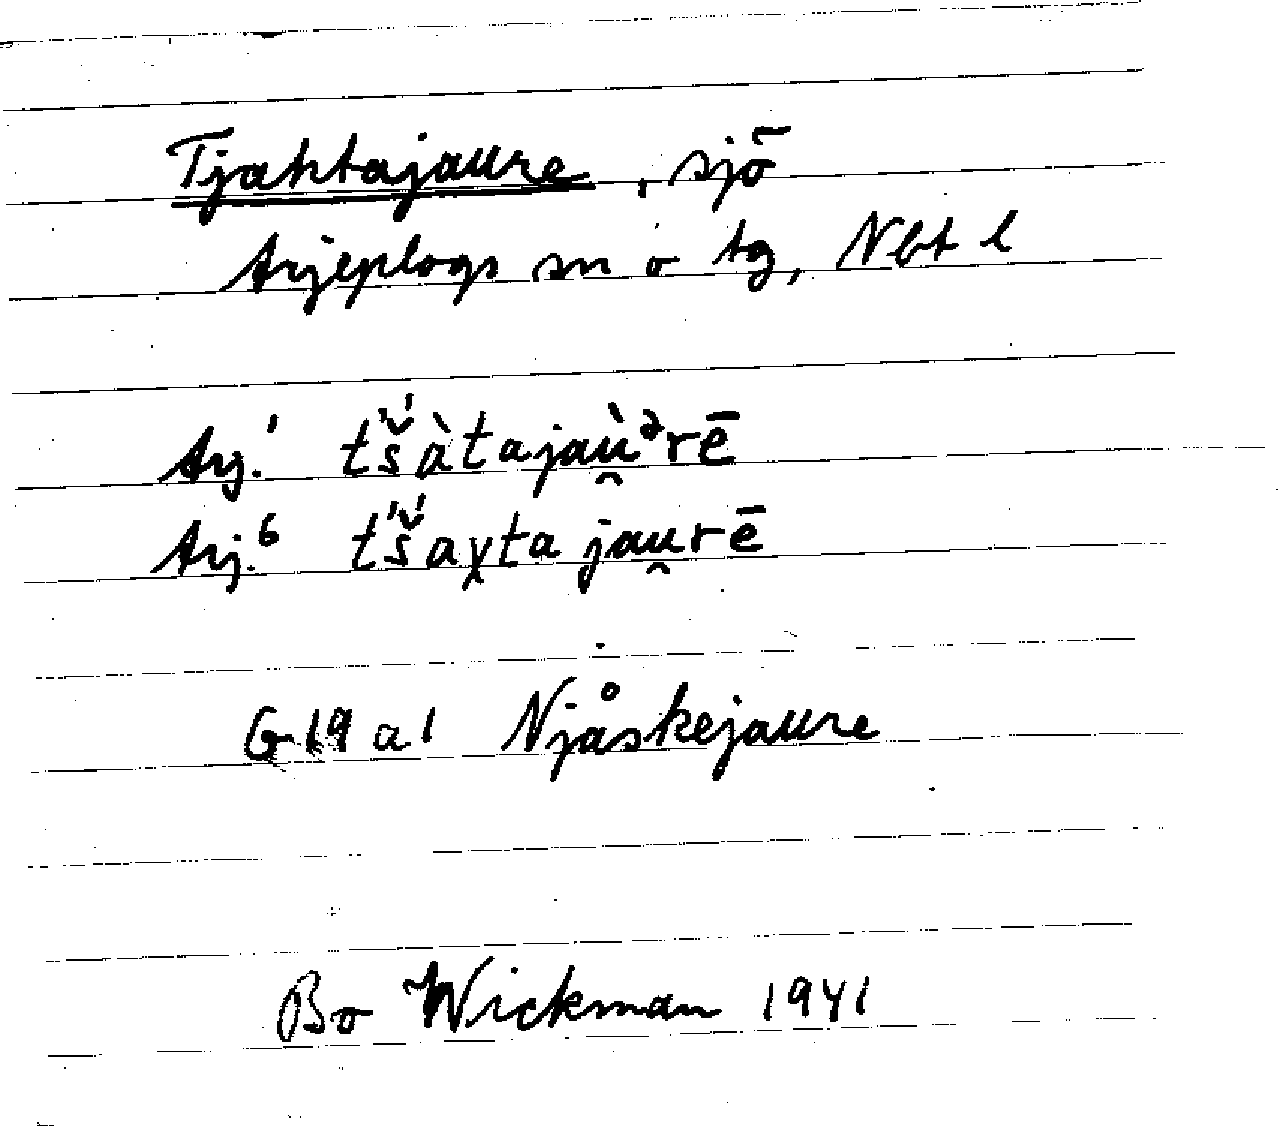 Tjahtajaure, sjö
Arjeplogs sn o tg, Nbt l
Arj.¹ t́š́àtajaù̯ᵊrē
Arj.⁶ t́š́aχtajau̯rē
G 19 a 1 Njåskejaure
Bo Wickman 1941